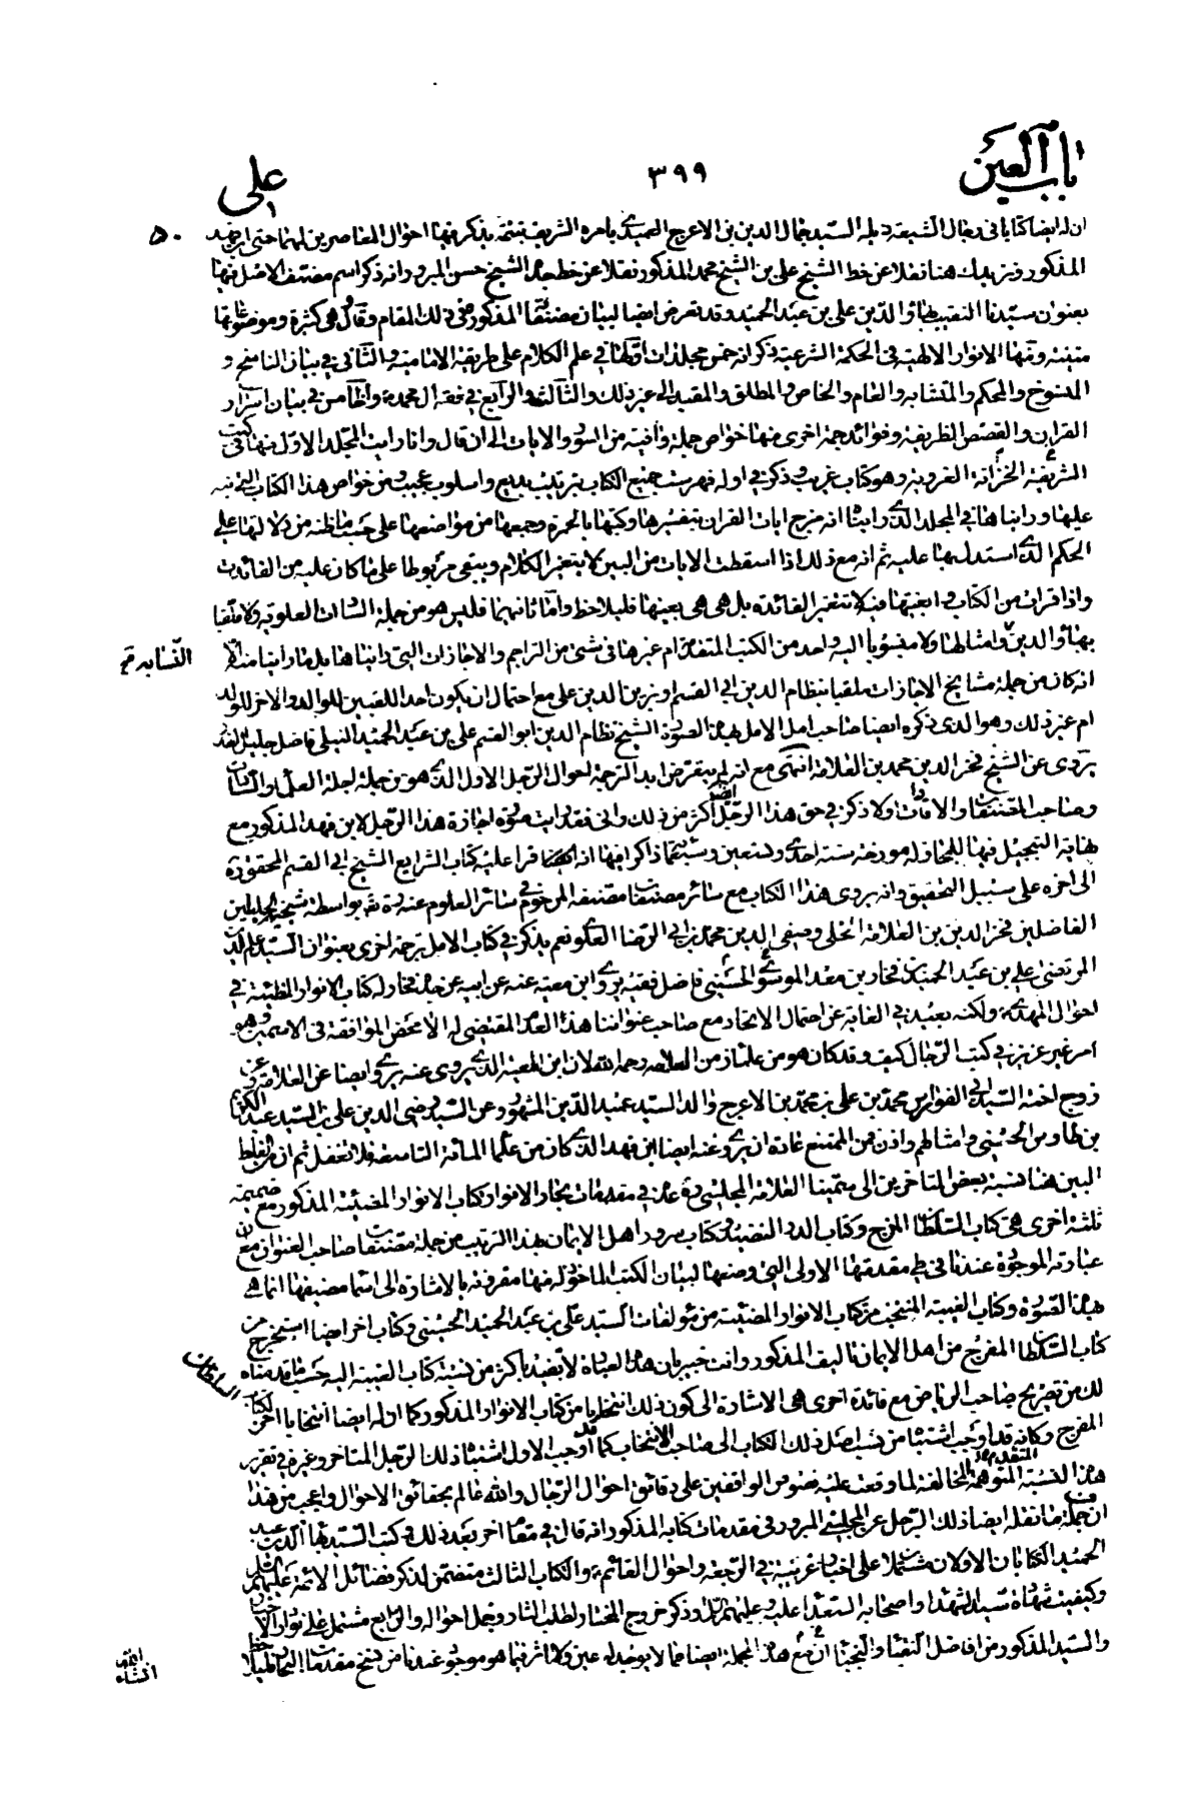 باب العين
٣٩٩
علي
٥٠
ان له ايضا كتابا في رجال الشيعة ذيله السيد جمال الدين بن الاعرج العميدي بامره الشريف بتتمة يذكر فيها احوال المعاصرين لهما حتى ابن فهد
المذكور ونزيدك هنا نقلا عن خط الشيخ علي بن الشيخ محمد المذكور نقلا عن خط جده الشيخ حسن المبرور انه ذكر اسم مصنف الاصل فيها
بعنوان سيدنا النقيب بهاء الدين علي بن عبد الحميد وقد تعرض ايضا لبيان مصنفات المذكور في ذلك المقام وقال هي كثيرة وموضوعاتها
متينة ومنها الانوار الالهية في الحكمة الشرعية ذكر انه خمس مجلدات اولها في علم الكلام على طريقة الامامية والثاني في بيان الناسخ و
المنسوخ والمحكم والمتشابه والعام والخاص والمطلق والمقيد الى غير ذلك والثالث والرابع في فقه ال محمد والخامس في بيان اسرار
القران والقصص الظريفة وفوائد جمة اخرى منها خواص جملة وافية من السور والايات الى ان قال وانا رايت المجلد الاول منها في كتب
الشريفة الخزانة الغروية وهو كتاب غريب وذكر في اوله فهرست جميع الكتاب بترتيب بديع واسلوب عجيب ومن خواص هذا الكتاب التي نبه
عليها ورايناها في المجلد الذي رايناه انه مزج ايات القران بتفسيرها وكتبها بالحمرة وجمعها من مواضعها على حسب مظانه من دلالتها على
الحكم الذي استدل بها عليه ثم انه مع ذلك اذا اسقطت الايات من البين لا يتغير الكلام ويبقى مربوطا على ما كان عليه من الفائدة
واذا قرات من الكتاب وابقيتها فيه لا تتغير الفائدة بل هي هي بعينها فليلاحظ واما ثانيهما فليس هو من جملة السادات العلوية ولا ملقبا
ببهاء الدين وامثالها ولا منسوبا اليه واحد من الكتب المتقدم ام غيرها في شئ من التراجم والاجازات التي رايناها بل ما راينا منه
النسابه
انه كان من جملة مشايخ الاجازات ملقبا بنظام الدين ابي القسم او بزين الدين علي مع احتمال ان يكون احد اللقبين للوالد والاخر للولد
ام غير ذلك وهو الذي ذكره ايضا صاحب امل الامل بهذه الصورة الشيخ نظام الدين ابو القسم علي بن عبد الحميد النيلي فاضل جليل القدر
يروى عن الشيخ فخر الدين محمد بن العلامة انتهى مع انه لم يتعرض ابدا لترجمة احوال الرجل الاول الذي هو من جملة اجلة العلماء والسادات
وصاحب المصنفات والافادات ولا ذكر في حق هذا الرجل ايضا اكثر من ذلك واني فقد رايت صورة اجازة هذا الرجل لابن فهد المذكور مع
نهاية التبجيل فيها للمجاز له مورخة سنة احدى وتسعين وسبعماة ذاكرا فيها انه قرا عليه كتاب الشرايع الشيخ ابي القسم المحقق
الى اخره على سبيل التحقيق وانه يروى هذا الكتاب مع سائر مصنفات مصنفه المرحوم في سائر العلوم عنه بواسطة شيخيه الجليلين
الفاضلين فخر الدين بن العلامة الحلي وصفي الدين محمد بن ابي الرضا العلوي نعم يذكر في كتاب الامل ترجمة اخرى بعنوان السيد علم الدين
المرتضى علي بن عبد الحميد بن فخار بن معد الموسوي الحسيني فاضل فقيه يروي ابن معية عنه عن ابيه عن جده فخار له كتاب الانوار المضيئة في
احوال المهدي ولكنه بعيد في الغاية عن احتمال الاتحاد مع صاحب عنواننا هذا العدم المقتضي له الا محض الموافقة في الاسمين وهو
امر غير عزيز في كتب الرجال كيف وقد كان هو من علماء زمن العلامه رحمه الله لان ابن المعية الذي يروى عنه يروي ايضا عن العلامة وعن
زوج اخته السيد ابي الفوارس محمد بن علي بن محمد بن الاعرج والد السيد عميد الدين المشهور وعن السيد رضي الدين علي بن السيد عبد الكريم
بن طاوس الحسيني وامثالهم واذن فمن الممتنع عادة ان يروي عنه ايضا ابن فهد الذي كان من علماء المائة التاسعة فلا تغفل ثم ان من الغلط
البين هنا نسبة بعض المتاخرين الى سمينا العلامة المجلسي ره عده في مقدمات بحار الانوار كتاب الانوار المضيئة المذكور مع ضميمة
ثلثة اخرى هي كتاب السلطان المفرج وكتاب الدر النضيد وكتاب سرور اهل الايمان بهذا الترتيب من جملة مصنفات صاحب العنوان مع ان
عبارته الموجودة عندنا في طي مقدمتها الاولى التي وضعها لبيان الكتب الماخوذ منها مقرونة بالاشارة الى اسماء مصنفيها انما هي
بهذه الصورة وكتاب الغيبة المنتخب من كتاب الانوار المضيئة من مؤلفات السيد علي بن عبد الحميد الحسيني وكتاب اخر ايضا استخرج من
كتاب السلطان المفرج من اهل الايمان تاليف المذكور وانت خبير بان هذه العبارة لا تفيد باكثر من نسبة كتاب الغيبة اليه حسب ما قدمناه
لك من تصريح صاحب الرياض مع فائدة اخرى هي الاشارة الى كون ذلك انتخابا من كتاب الانوار المذكور كما ان له ايضا انتخابا اخر لكتاب السلطان
المفرج وكانه قد اوجب اشتباها من نسب اصل ذلك الكتاب الى صاحب الانتخاب كما قد اوجب الاول اشتباه ذلك الرجل المتاخر وغيره في تقرير
هذا النسبة المتوهمة المتقدمة المخالفة لما وقعت عليه نصوص الواقفين على دقائق احوال الرجال والله عالم بحقائق الاحوال واعجب من هذا
ان جملة ما نقله ايضا ذلك الرجل عن المجلسي المبرور في مقدمات كتابه المذكور انه قال في مقام اخر بعد ذلك وكتب السيد بهاء الدين عبد
الحميد الكتابان الاولان مشتملان على اخبار غريبة في الرجعة واحوال القائم والكتاب الثالث متضمن لذكر فضائل الائمة عليهم السلام
وكيفية شهادة سيد الشهداء واصحابه السعداء عليه وعليهم السلام وذكر خروج المختار لطلب الثار وجمل احواله والرابع مشتمل على نوادر الاخبار
والسيد المذكور من افاضل النقباء والنجباء مع ان هذه الجملة ايضا مما لا يوجد له عين ولا اثر فيما هو موجود عندنا من نسخ مقدمات البحار فليلاحظ
انشاء الله